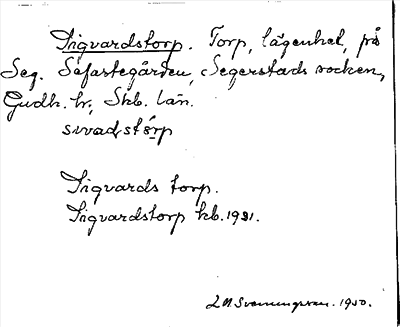 Sigvardstorp. Torp, lägenhet, på
Seg. Säfastegården, Segerstads socken,
Gudh. hr, Skb. län.
sivadstórp
Sigvards torp.
Sigvardstorp kb. 1931.
1950.